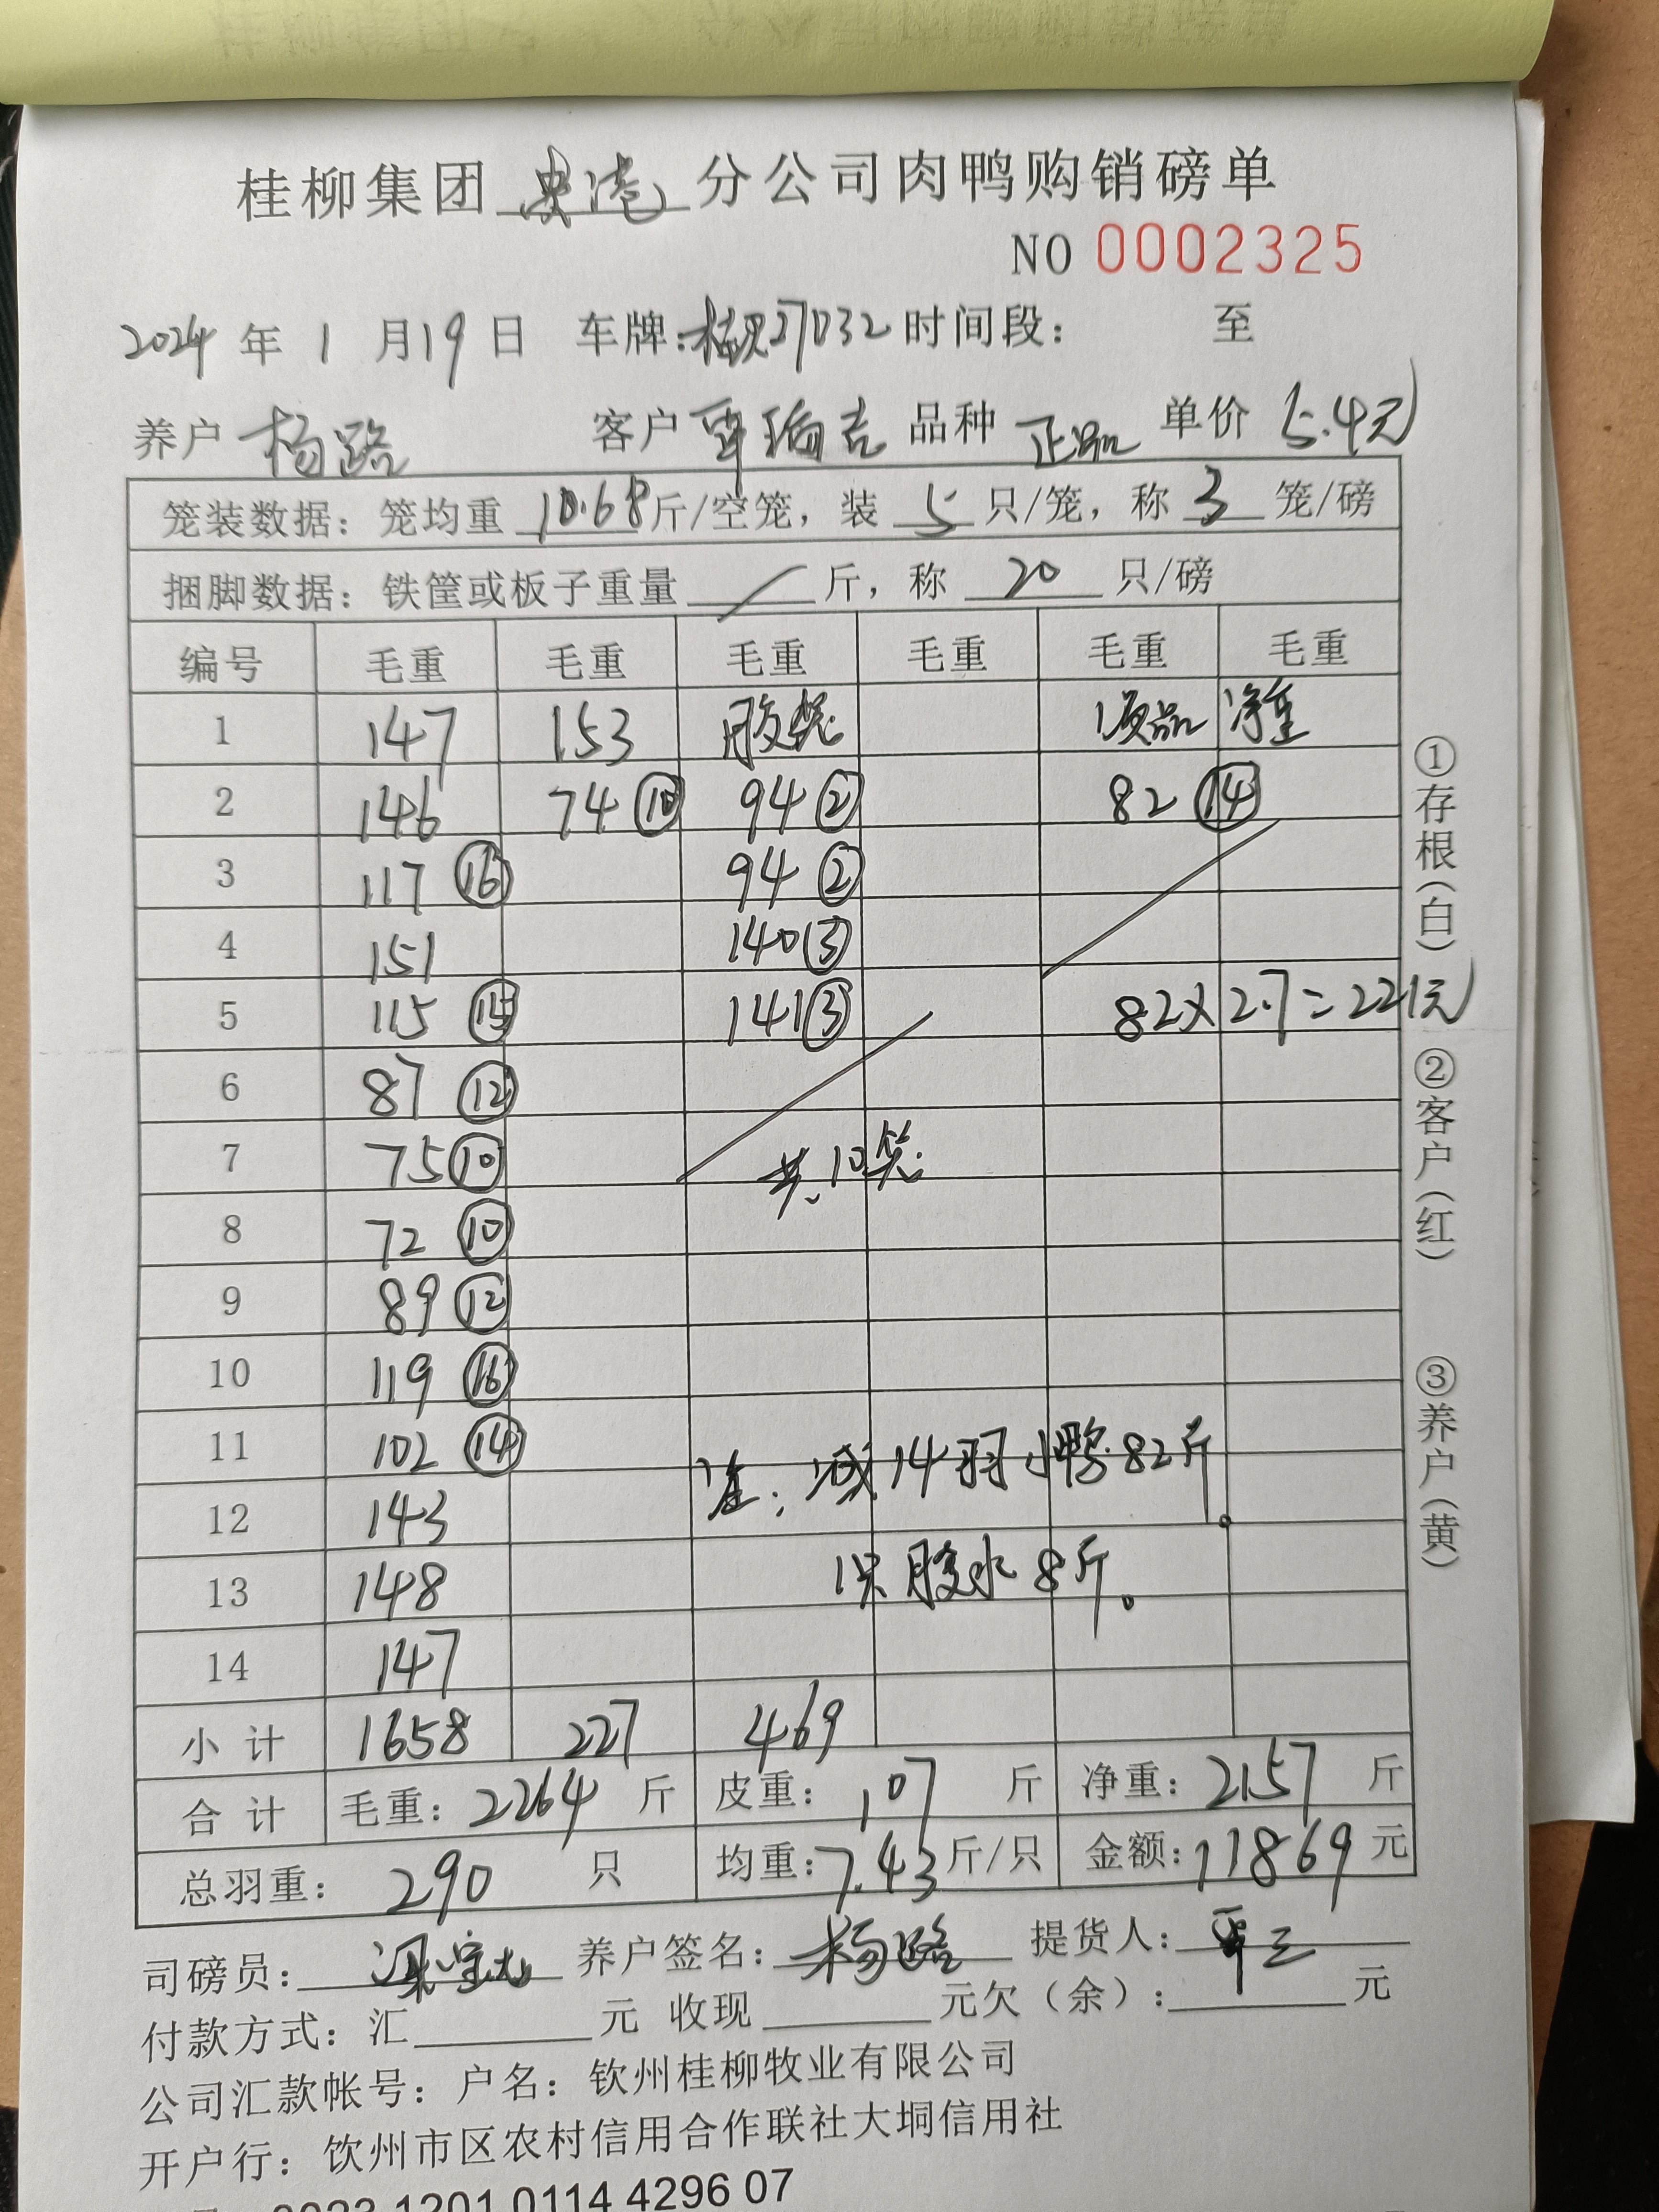 桂柳集团 贵港 分公司肉鸭购销磅单
NO 0002325
2024 年 1 月 19 日 车牌: 27032 时间段: 至
养户 杨路 客户 覃瑞吉 品种 正品 单价 5.4元
笼装数据: 笼均重 10.68 斤/空笼, 装 5 只/笼, 称 3 笼/磅
捆脚数据: 铁筐或板子重量 / 斤, 称 20 只/磅
编号 毛重 毛重 毛重 毛重 毛重 毛重
1 147 153 胶笼 次品 净重
2 146 74 ⑩ 94 ② 82 ⑭
3 117 ⑯ 94 ②
4 151 140 ③
5 115 ⑮ 141 ③ 82×2.7=221元
6 87 ⑫
7 75 ⑩ 共10笼
8 72 ⑩
9 89 ⑫
10 119 ⑯
11 102 ⑭ 注: 减14羽小鸭82斤。
12 143
13 148 1只胶水8斤。
14 147
小计 1658 227 469
合计 毛重: 2264 斤 皮重: 107 斤 净重: 2157 斤
总羽重: 290 只 均重: 7.43 斤/只 金额: 11869 元
司磅员: 梁 养户签名: 杨路 提货人: 覃三
付款方式: 汇 元 收现 元欠(余): 元
公司汇款帐号: 户名: 钦州桂柳牧业有限公司
开户行: 饮州市区农村信用合作联社大垌信用社
1201 0114 4296 07
①存根(白) ②客户(红) ③养户(黄)